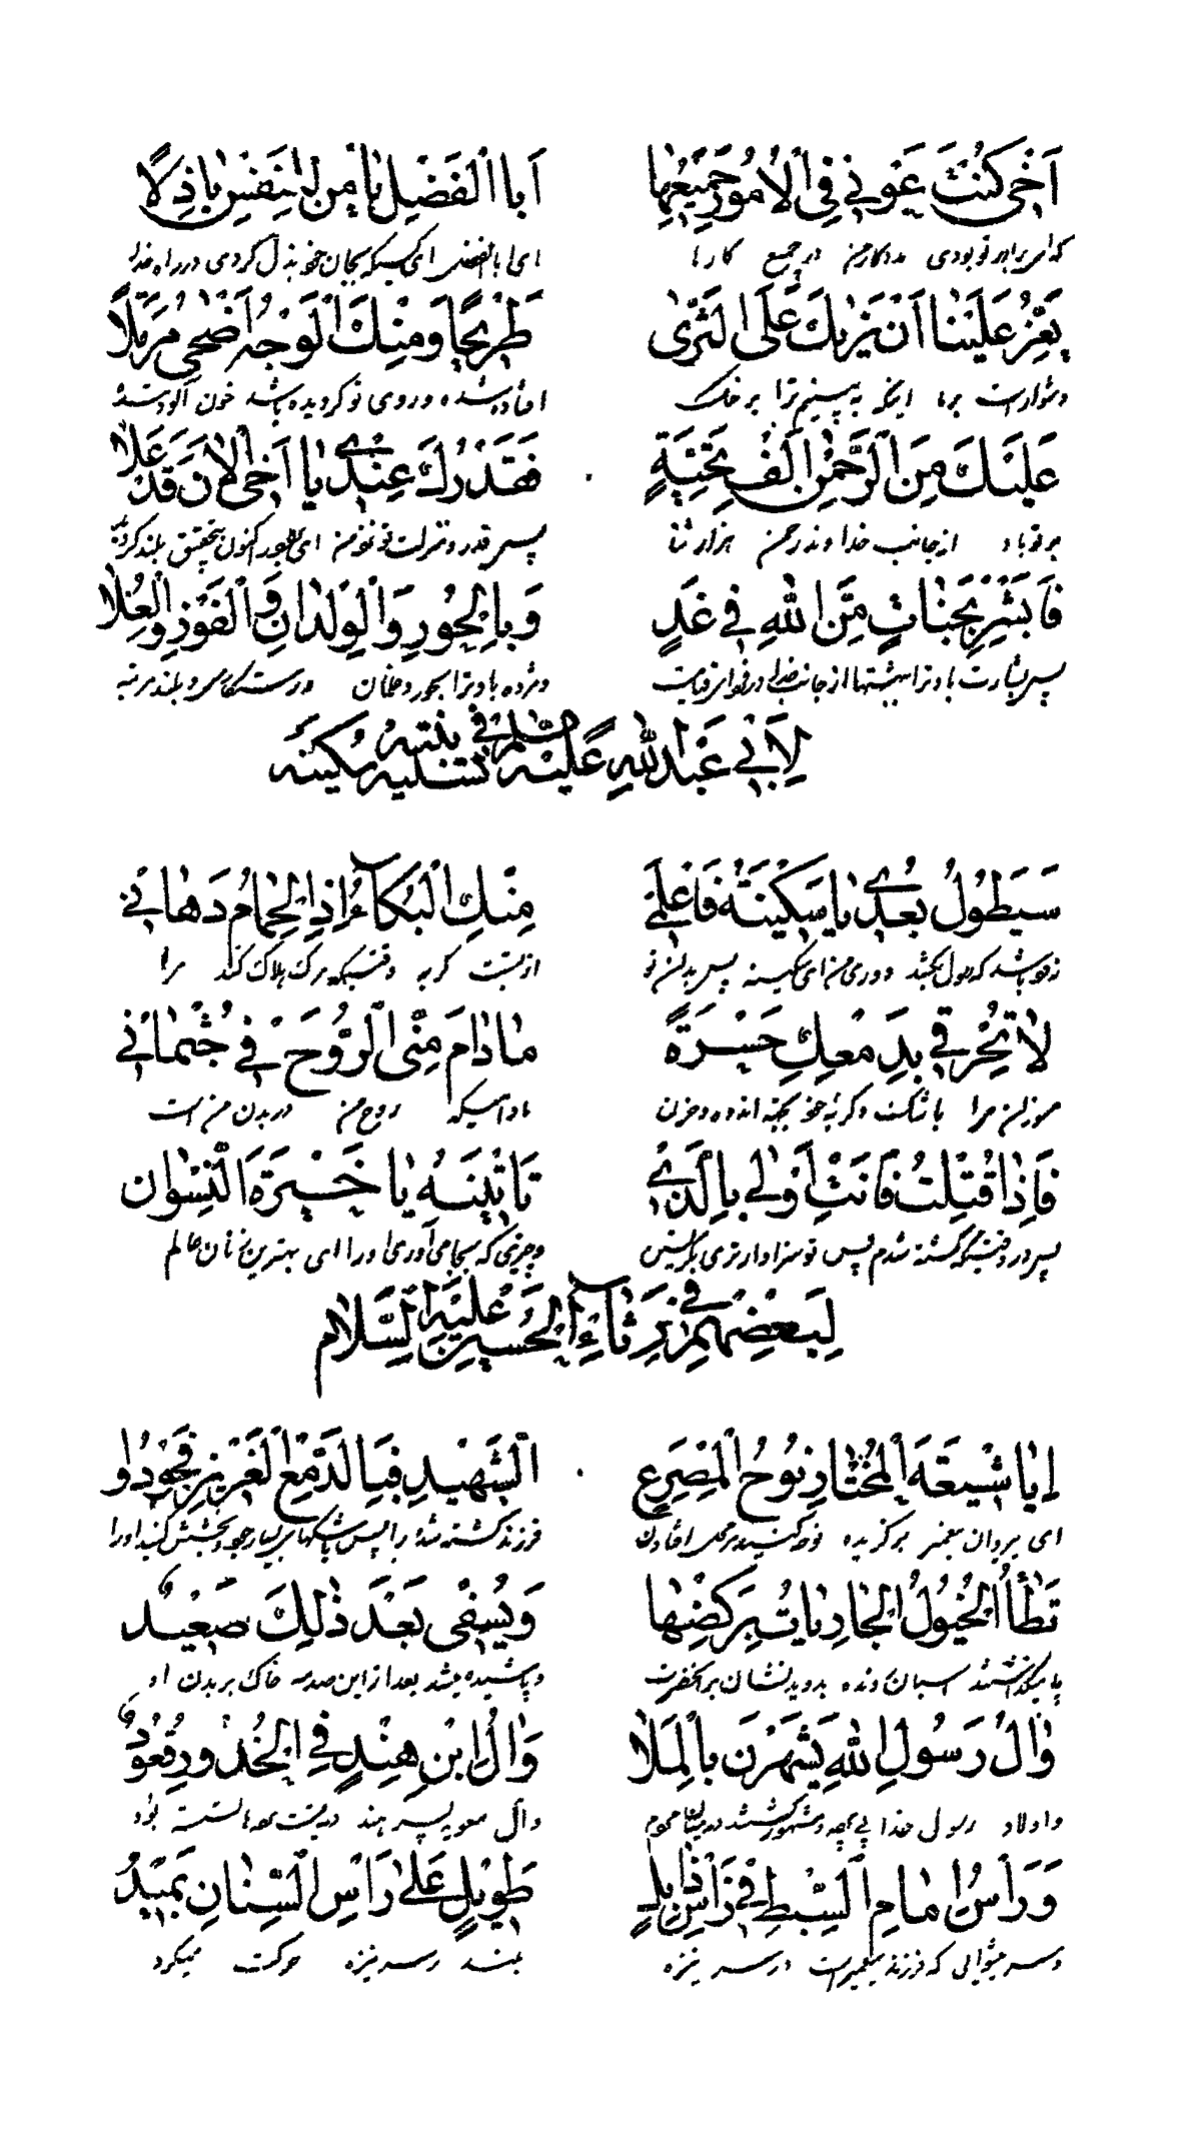 اَخی کُنْتَ عَوْنی فِی الْاُمُورِ جَمیعِها اَبَا الْفَضْلِ یا مَنْ لَهُ النَّفْسِ باذِلًا
برادر تو بودی مددکار من در جمیع کارها ای ابا الفضل ای کسیکه بجان خود بذل کردی در راه خدا
یَعِزُّ عَلَیْنا اَنْ نَرٰیكَ عَلَی الثَّرٰی طَریحًا وَ مِنْكَ الْوَجْهُ اَضْحٰی مُرَمَّلًا
دشوار است بر ما اینکه به بینیم ترا بر خاک افتاده شده و روی تو گردیده باشد خون آلوده شده
عَلَیْكَ مِنَ الرَّحْمٰنِ اَلْفُ تَحِیَّةٍ فَقَدْرُكَ عِنْدی یا اَخِی الْاٰنَ قَدْ عَلا
بر تو باد از جانب خداوند رحمن هزار ثنا پس قدر و منزلت تو نزد من ای برادر اکنون بتحقیق بلند گردید
فَابْشِرْ بِجَنّاتٍ مِنَ اللهِ فی غَدٍ وَ بِالْحُورِ وَ الْوِلْدانِ وَ الْفَوْزِ وَ الْعُلا
پس بشارت باد ترا ببهشتها از جانب خدا در فردای قیامت و مژده باد ترا بحور و غلمان و رستگاری و بلند مرتبه
لِاَبی عَبْدِ اللهِ عَلَیْهِ السَّلامُ فی تَسْلِیَهِ بِنْتِهِ سُکَیْنَه
سَیَطُولُ بُعْدی یا سَکینَةُ فَاعْلَمی مِنْكِ الْبُکاءُ اِذِ الْحِمامُ دَهانی
زود باشد که طول بکشد دوری من ای سکینه پس بدان تو از تست گریه وقتیکه مرگ هلاک کند مرا
لا تُحْرِقی بِدَمْعِكِ حَسْرَةً ما دامَ مِنّی الرُّوحُ فی جُثْمانی
مسوزان مرا باشکت و گریه خود بجهة اندوه و حزن مادامیکه روح من در بدن من است
فَاِذا قُتِلْتُ فَاَنْتِ اَوْلٰی بِالَّذی تَأْتینَهُ یا خَیْرَةَ النِّسْوانِ
پس در وقتیکه کشته شدم پس تو سزاوارتری بگریستن و چیزی که بجا می آوری او را ای بهترین زنان عالم
لِبَعْضِهِمْ فی رِثاءِ الْحُسَیْنِ عَلَیْهِ السَّلامُ
اَیا شیعَةَ الْمُخْتارِ نُوحُ الْمَصْرَعِ الشَّهیدِ فَبِالدَّمْعِ الْغَزیرِ فَجُودُوا
ای پیروان پیغمبر برگزیده نوحه کنید بر محل افتادن فرزند کشته شده را پس باشکهای بسیار جود و بخشش کنید او را
تَطَأُ الْخُیُولُ الْجارِیاتُ بِرَکْضِها وَ یُسْفٰی بَعْدَ ذٰلِكَ صَعیدٌ
پا میگذاشتند اسبان دونده بدویدنشان بر آنحضرت و پاشیده میشد بعد از این صدمه خاک بر بدن او
وَ اٰلُ رَسُولِ اللهِ یُشْهَرْنَ بِالْمَلا وَ اٰلُ ابْنِ هِنْدٍ فِی الْخُدُورِ قُعُودٌ
و اولاد رسول خدا مشهور گشتند در میان مردم و آل معویه پسر هند در پشت پرده ها نشسته بودند
وَ رَأْسُ اِمامِ السِّبْطِ فی رَأْسِ ذابِلٍ طَویلٍ عَلٰی رَأْسِ السِّنانِ یَمیدُ
و سر پیشوائی که فرزند پیغمبر است در سر نیزه بلند بر سر نیزه حرکت میکرد